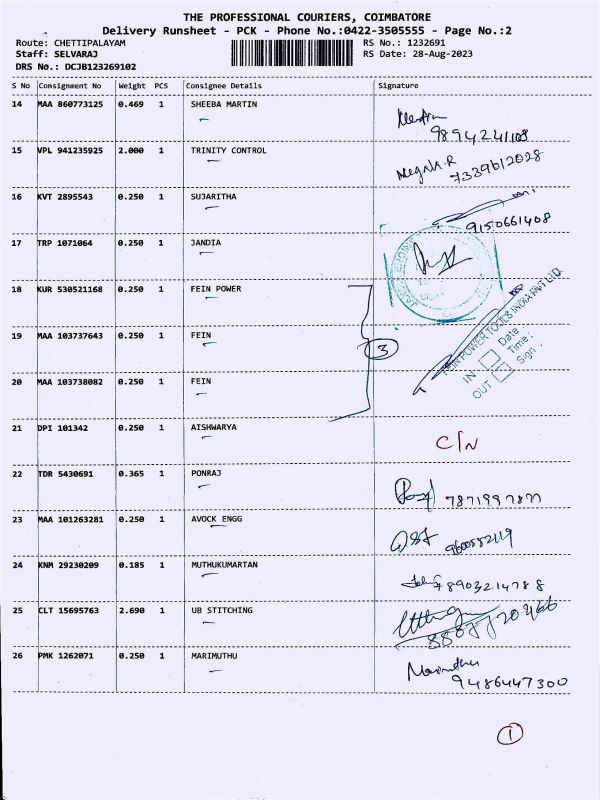 THE PROFESSIONAL COURIERS, COIMBATORE
Delivery Runsheet - PCK - Phone No.:0422-3505555 - Page No.:2
Route: CHETTIPALAYAM RS No.: 1232691
Staff: SELVARAJ RS Date: 28-Aug-2023
DRS No.: DCJB123269102
S No Consignment No Weight PCS Consignee Details Signature
14 MAA 860773125 0.469 1 SHEEBA MARTIN
9894241108
15 VPL 941235925 2.000 1 TRINITY CONTROL
7339612028
16 KVT 2895543 0.250 1 SUJARITHA
9150661408
17 TRP 1071064 0.250 1 JANDIA
18 KUR 530521168 0.250 1 FEIN POWER
19 MAA 103737643 0.250 1 FEIN
3
FEIN POWER TOOLS INDIA PVT LTD.
IN Date
Time
OUT Sign
20 MAA 103738082 0.250 1 FEIN
21 DPI 101342 0.250 1 AISHWARYA
C/N
22 TDR 5430691 0.365 1 PONRAJ
23 MAA 101263281 0.250 1 AVOCK ENGG
9600552119
24 KNM 29230209 0.185 1 MUTHUKUMARTAN
8903214788
25 CLT 15695763 2.690 1 UB STITCHING
26 PMK 1262071 0.250 1 MARIMUTHU
Marimuthu
9486447300
1